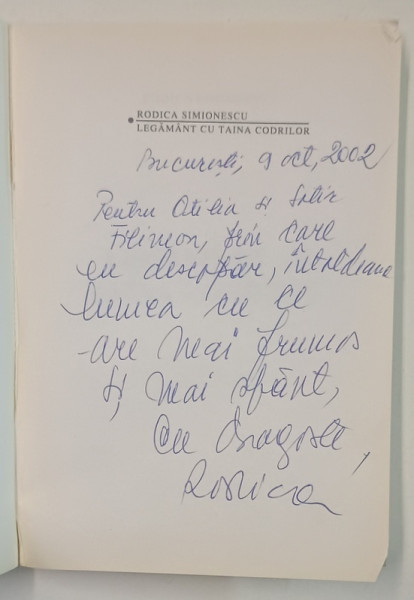 RODICA SIMIONESCU
LEGĂMÂNT CU TAINA CODRILOR
București, 9 oct, 2002
Pentru Otilia și Sotir
Filimon, prin care
eu descopăr, întotdeauna
lumea cu ce
are mai frumos
și mai sfânt,
Cu dragoste,
Rodica